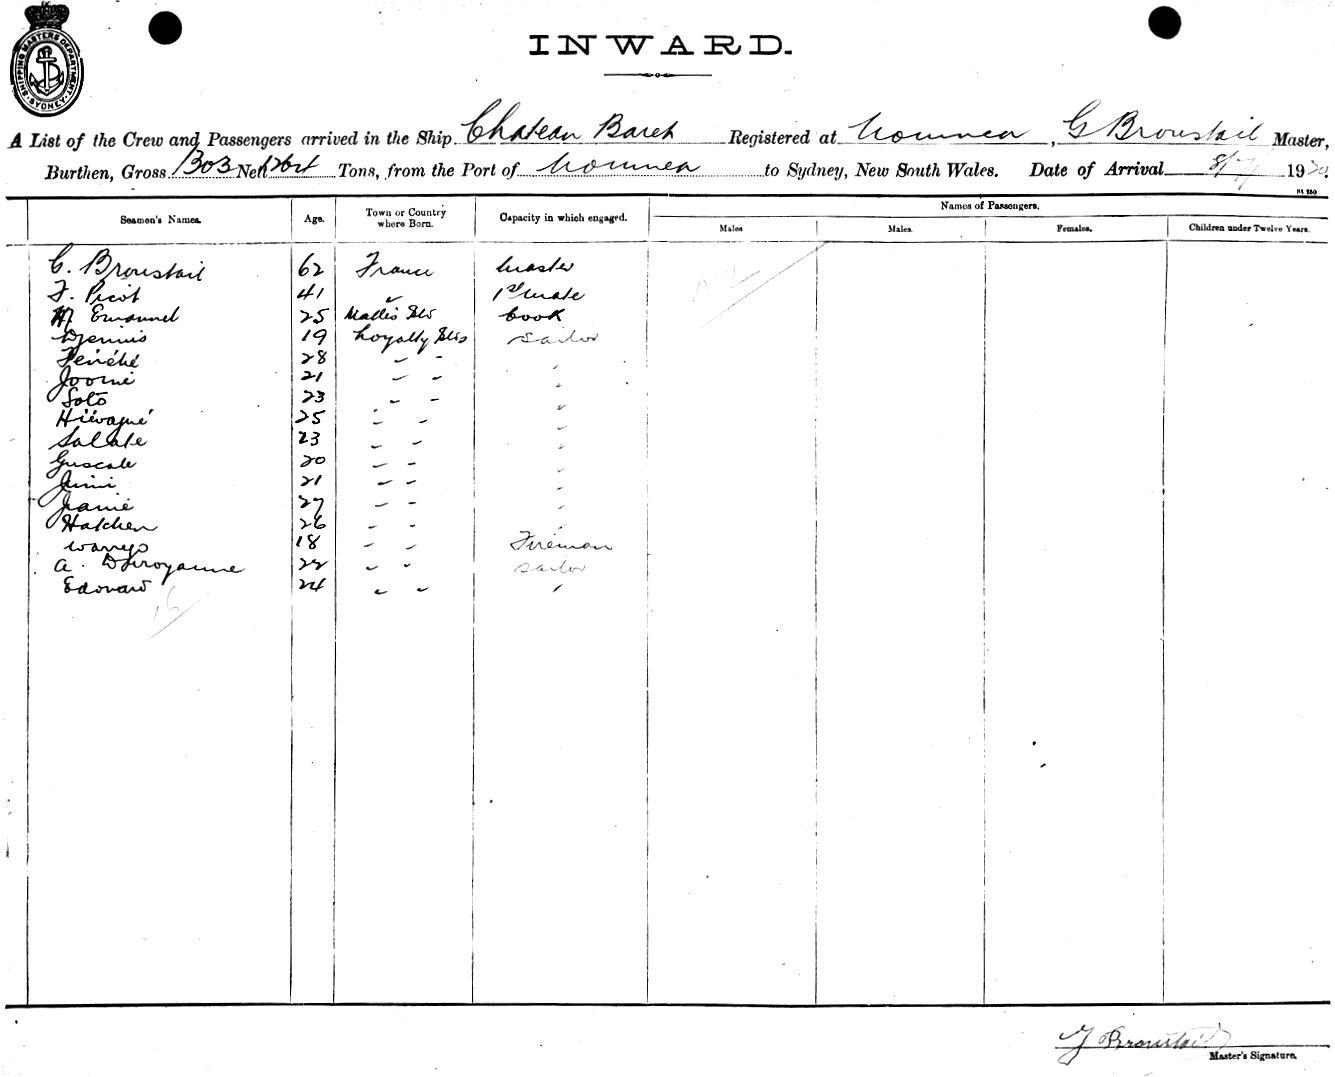 SHIPPING MASTERS DEPARTMENT. SYDNEY.
INWARD.
A List of the Crew and Passengers arrived in the Ship Chateau Registered at Noumea, G Broustail Master,
Burthen, Gross 1303 Nett Tons, from the Port of Noumea to Sydney, New South Wales. Date of Arrival 8/7/ 1920.
Seamen's Names. Age. Town or Country where Born. Capacity in which engaged. Names of Passengers.
Males Males. Females. Children under Twelve Years.
G. Broustail 62 France Master
F. Picot 41 " 1st Mate
M Emanuel 25 Wallis Isls Cook
Djennis 19 Loyalty Isls Sailor
Fénéké 28 " " "
Joomé 21 " " "
Soto 23 " " "
Hiévagné 25 " " "
Salate 23 " " "
Guscate 20 " " "
Jimi 21 " " "
Jamé 27 " " "
Hatchen 26 " " "
Warryo 18 " " Fireman
A. 22 " " Sailor
Edouard 24 " " "
16
G Broustail
Master's Signature.